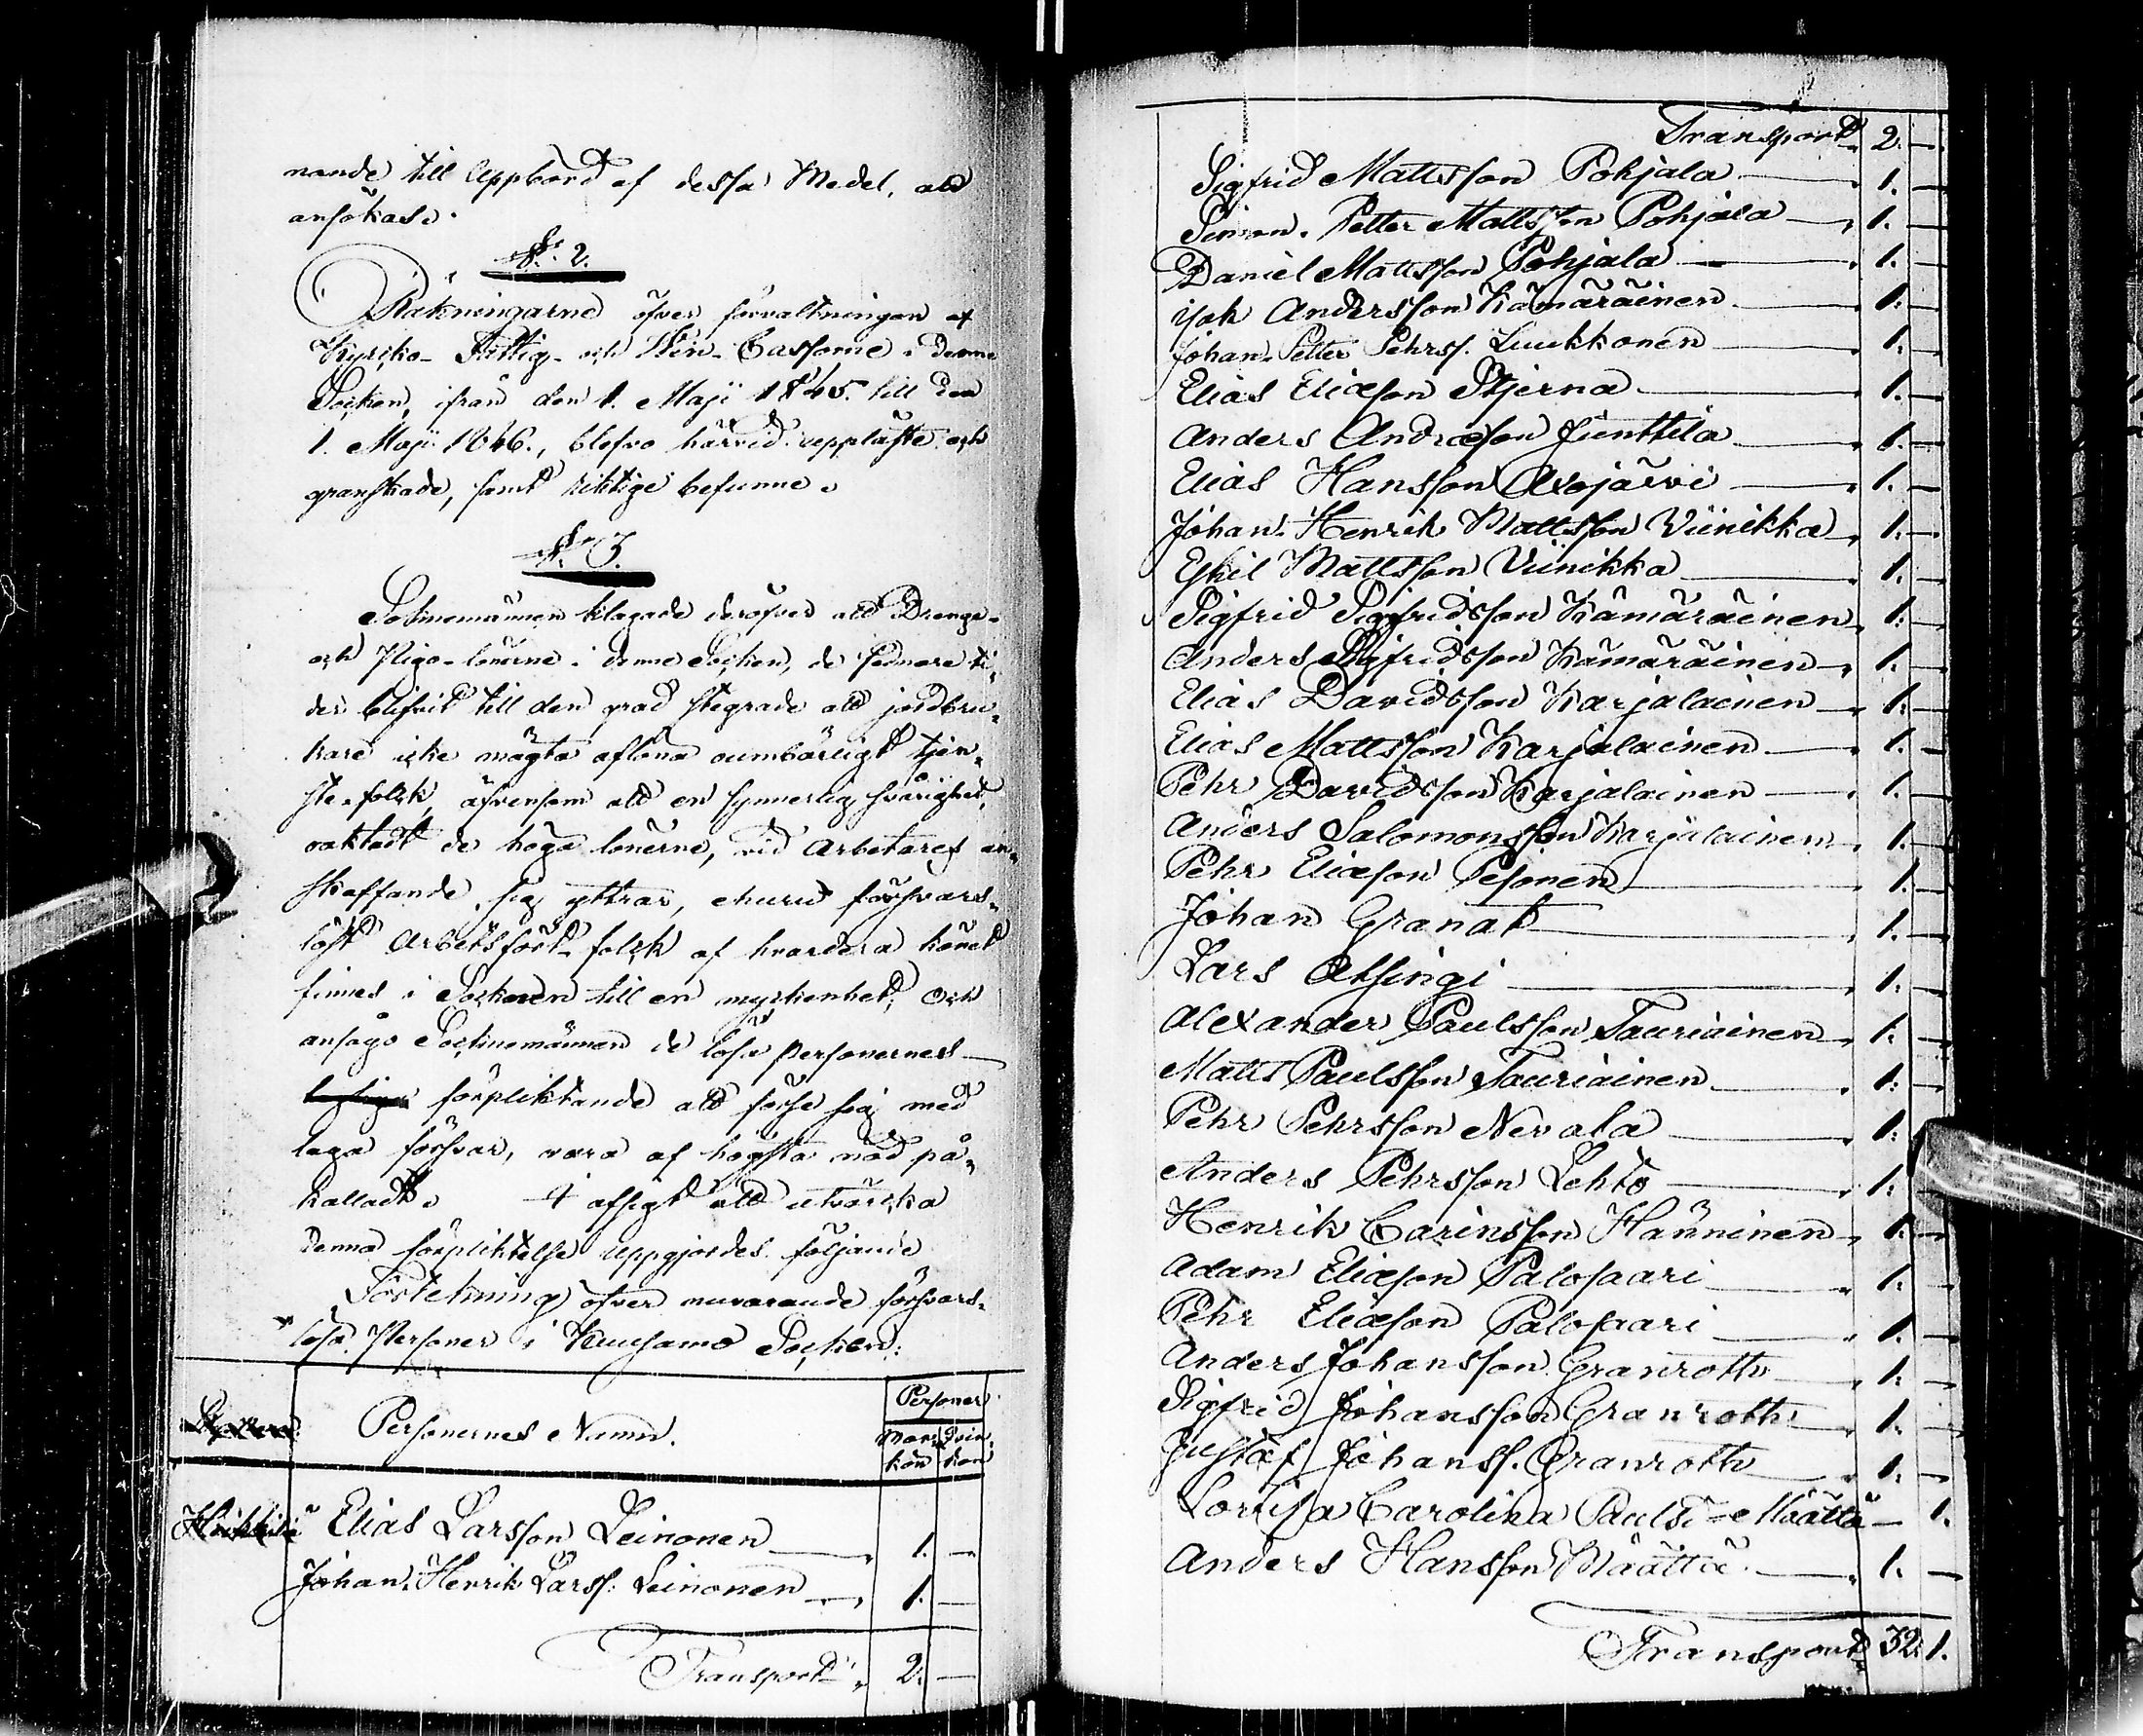 nande till Uppbörd af dessa Medel, att
ansökas.
§. 2.
Räkningarne öfver förvaltningen af
Kyrko- Fattig- och Vin- Cassorne i denna
Socken, ifrån den 1. Maji 1845. till den
1. Maji 1846., blefvo härvid uppläste och
granskade, samt riktige befunne.
§. 3.
Soknemännen klagade deröfver att Drenge-
och Pigo-lönerne i denne Socken, de sednare ti-
der blifvit till den grad stegrade att jordbru-
kare icke mägta aflöna oumbärligt tjen-
ste-folck, äfvensom att en synnerlig svårighet,
oaktadt de höga lönerne, vid Arbetares an-
skaffande, sig yttrar, ehuru försvars-
löst Arbetsfört folck af hvardera könet
finnes i Socknen till en myckenhet; och
ansågo Socknemännen de lösa personernes
förpliktande att förse sig med
laga försvar, vara af högsta nöd på-
kalladt. I afsigt att utvärcka
denna förplicktelse uppgjordes följande
Förtekning öfver nuvarande försvars-
lösa Personer i Kuusamo Socken:
Personernes Namn.
Personer
Man- kön
Qvin- kön
Elias Larsson Leinonen 1. —
Johan Henrik Larss. Leinonen 1. —
Transport 2. —
Transport 2. —
Sigfrid Mattsson Pohjala 1. —
Simon Petter Mattsson Pohjala 1. —
Daniel Mattsson Pohjala 1. —
Isak Andersson Kämäräinen 1. —
Johan Petter Pehrss. Luukkonen 1. —
Elias Eliæson Stjerna 1. —
Anders Andræson Junttila 1. —
Elias Hansson Oxojärvi 1. —
Johan Henrik Mattsson Viinikka 1. —
Eskil Mattsson Viinikka 1. —
Sigfrid Sigfridsson Kämäräinen 1. —
Anders Sigfridsson Kämäräinen 1. —
Elias Davidsson Karjalainen 1. —
Elias Mattsson Karjalainen 1. —
Pehr Davidsson Karjalainen 1. —
Anders Salomonsson Karjalainen 1. —
Pehr Eliæson Pesonen 1. —
Johan Granat 1. —
Lars Atsingi 1. —
Alexander Paulsson Tauriainen 1. —
Matts Paulsson Tauriainen 1. —
Pehr Pehrsson Nevala 1. —
Anders Pehrsson Lehto 1. —
Henrik Carinsson Hänninen 1. —
Adam Eliæson Palosaari 1. —
Pehr Eliæson Palosaari 1. —
Anders Johansson Granroth 1. —
Sigfrid Johansson Granroth 1. —
Gustaf Johanss. Granroth 1. —
Lovisa Carolina Paulsd. Määttä — 1.
Anders Hansson Määttä 1. —
Transport 32. 1.